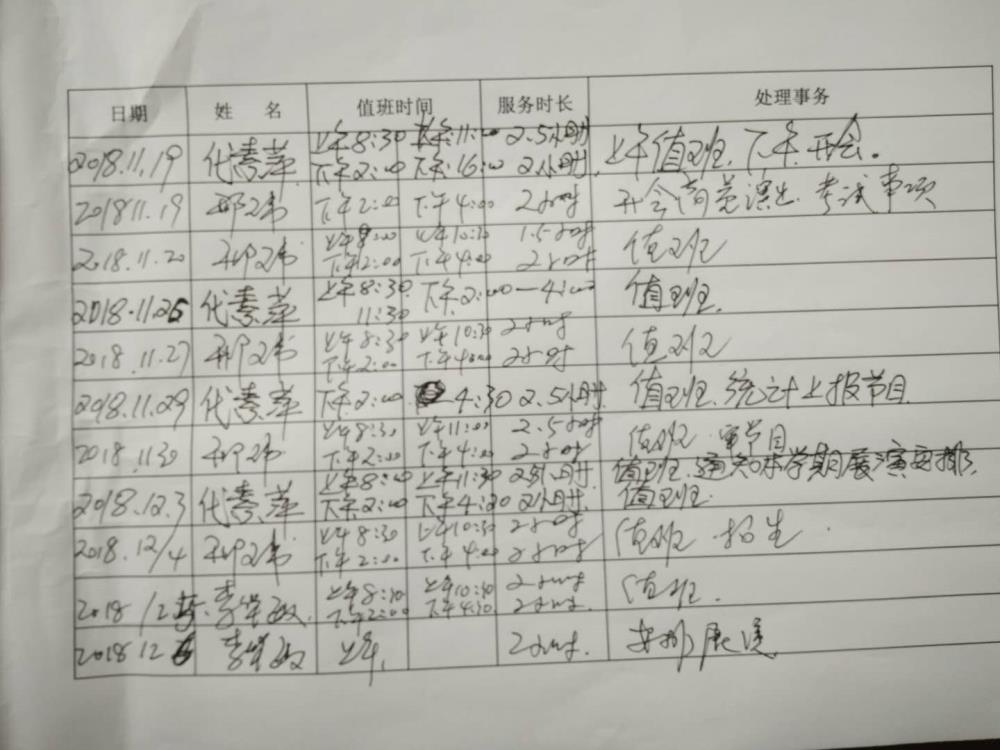 日期 姓 名 值班时间 服务时长 处理事务
上午8:30 上午11:00 2.5小时
2018.11.19 代素萍 上午值班、下午开会。
下午2:00 下午16:00 2小时
2018 11.19 下午2:00 下午4:00 2小时 开会 考试事项
上午9:00 上午10:30 1.5小时
2018.11.20 值班
下午2:00 下午4:00 2小时
2018.11.26 代素萍 上午8:30 下午2:00—4:00 值班.
11:30
上午8:30 上午10:30 2小时
2018.11.27 值班
下午2:00 下午4:00 2小时
2018.11.29 代素萍 下午2:00 4:30 2.5小时. 值班.统计上报节目
上午8:30 上午11:00 2.5小时
2018.1130 值班 节目
下午2:00 下午4:00 2小时
上午8:00 上午11:30 小时. 值班.通知本学期展演安排.
2018.12.3 代素萍
下午2:00 下午4:30 2小时. 值班.
上午8:30 上午10:30 2小时
2018.12/4 值班 招生
下午2:00 下午4:00 2小时
上午8:30 上午10:30 2小时
2018 /2 5. 李 值班.
下午2:00 下午4:30 2小时.
2018 12 6 李 上午. 2小时. 安排展演